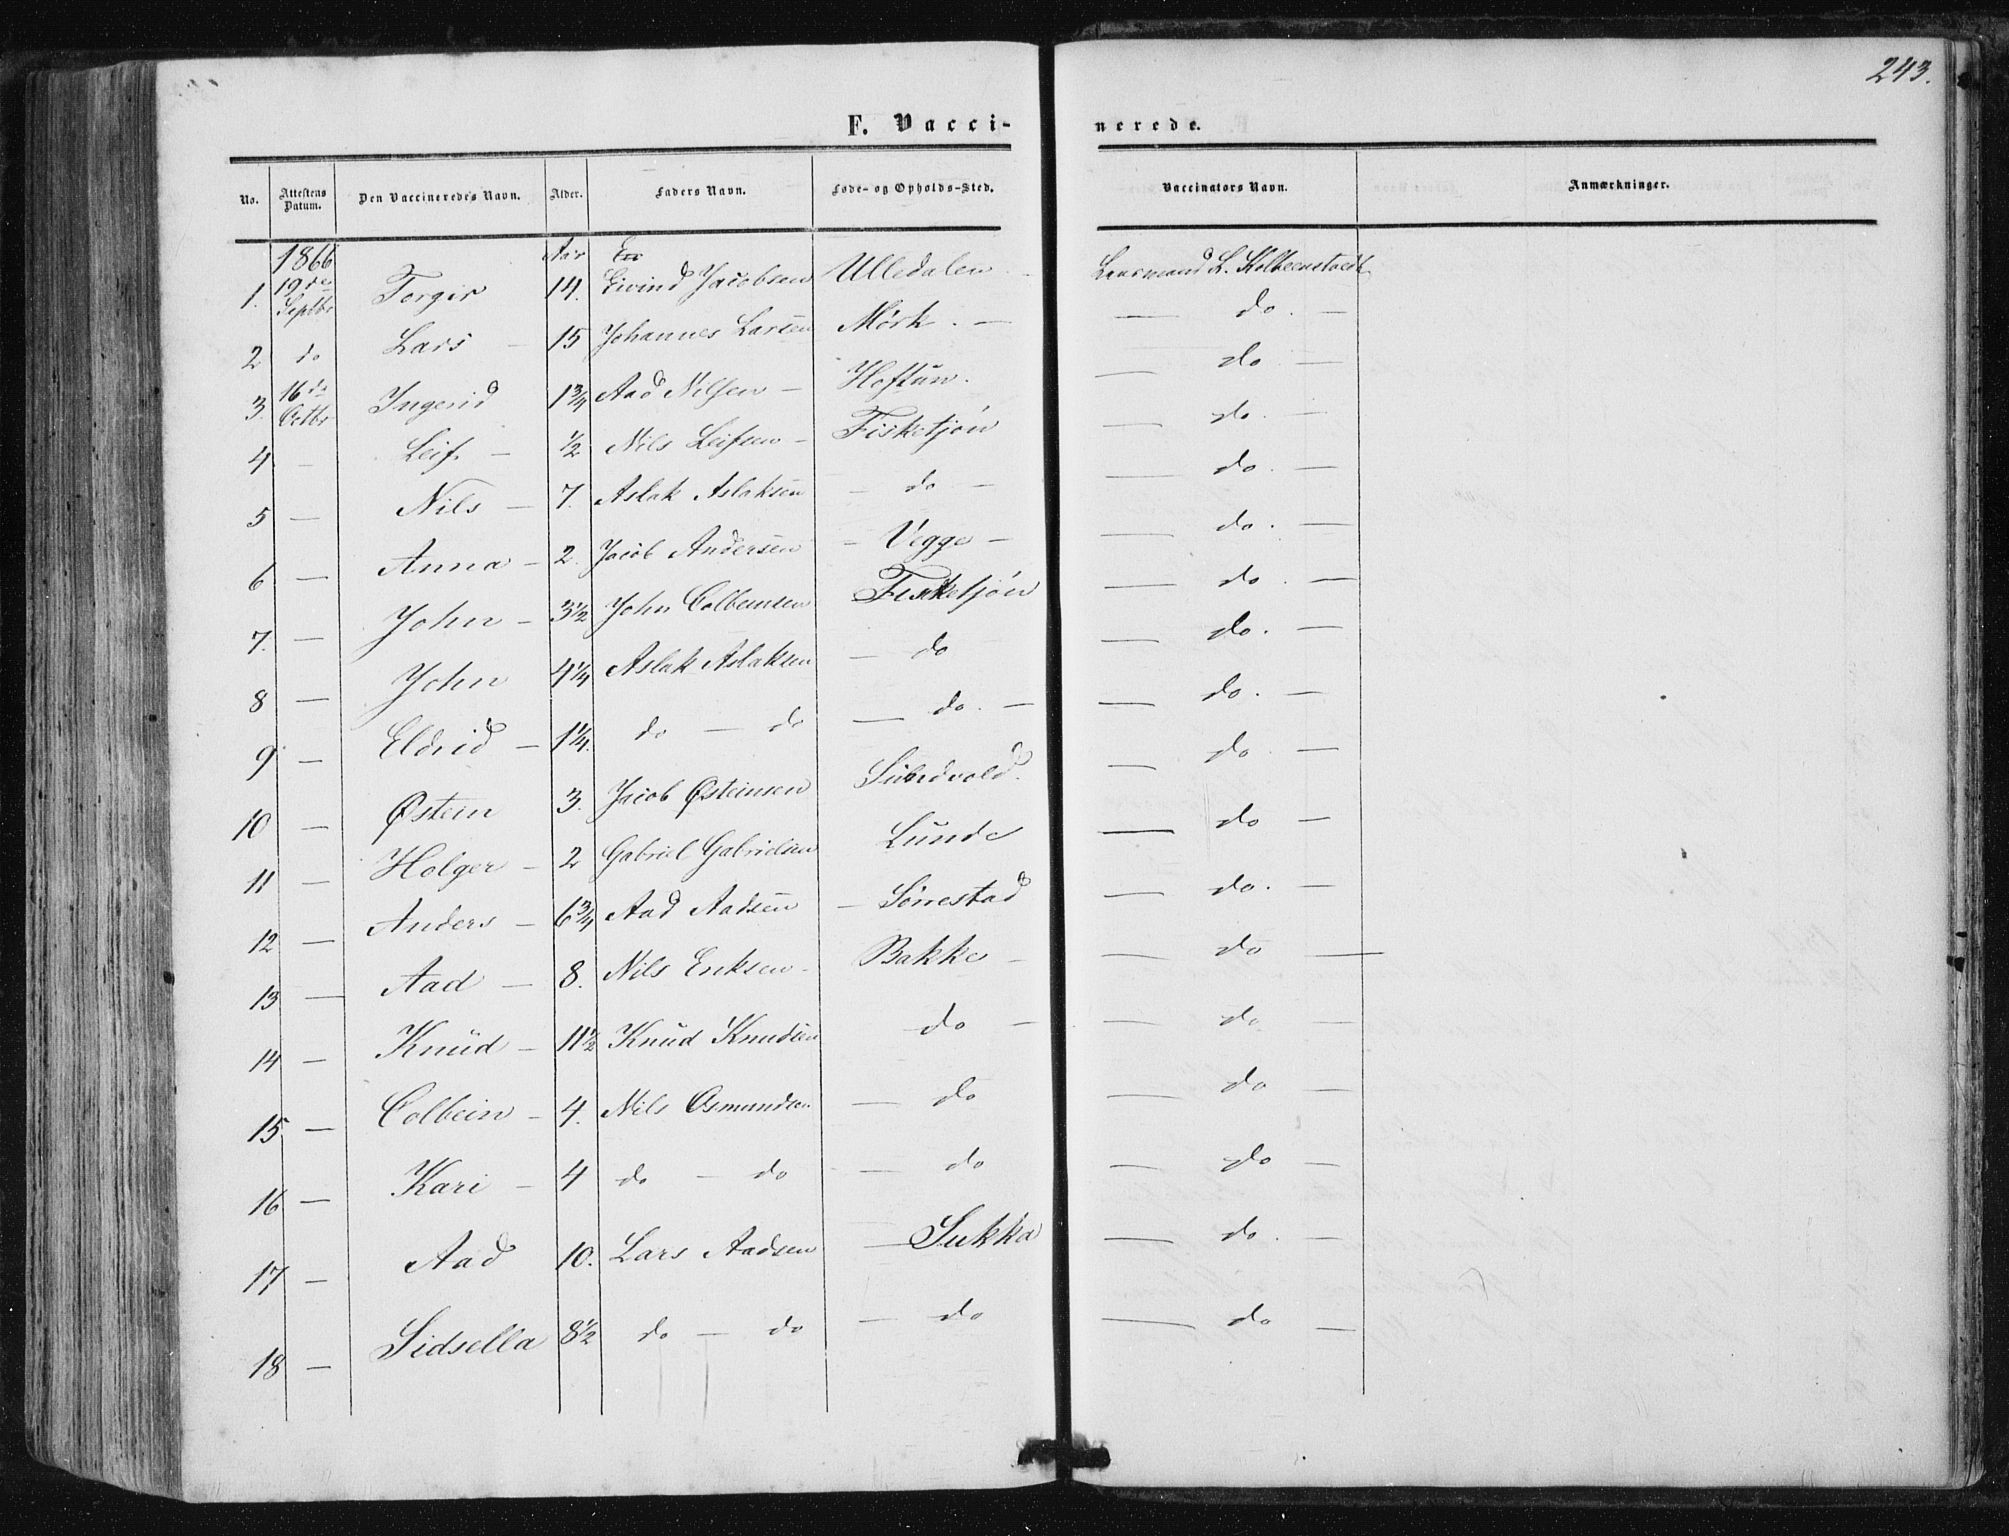 243.
F. Vacci-
nerede.
No. Attestens Datum. Den Vaccineredes Navn. Alder. Faders Navn. Føde- og Opholds-Sted. Vaccinators Navn. Anmærkninger.
1866 Aar
1. 19de Septbr Torgir 14. Eivind Jacobsen Ulledalen - Lensmand L. Kolbeenstvedt
2 do Lars - 15 Johannes Larsen Mørk. - — do. —
3. 16de Octbr Ingerid 1 3/4 Aad Nilsen - Hoftun. — do —
4 - Leif - 1/2 Nils Leifsen - Fisketjøn — do. —
5 — Nils - 7. Aslak Aslaksen - do - — do. —
6 — Anna - 2. Jacob Andersen - Vegge - — do. —
7. — John - 3 1/2 John Colbeinsen Fisketjøn — do. —
8 — John 4 1/4 Aslak Aslaksen — do — do. —
9 — Eldrid - 1 1/4. do — do — do. - — do. —
10 — Østein 3. Jacob Østeinsen Sundvold. — do. —
11 — Holger - 2 Gabriel Gabrielsen Lunde — do —
12 — Anders - 6 3/4 Aad Aadsen - Sørrestad — do. —
13 — Aad - 8. Nils Eriksen - Bakke - — do —
14 — Knud - 11 1/2 Knud Knudsen do - — do —
15 — Colbein - 4. Nils Osmundsen — do — do —
16 — Kari - 4 do - do — do — do —
17 — Aad 10. Lars Aadsen — Sukka — do. —
18 — Sidsella 8 1/2 do — do - do — do —